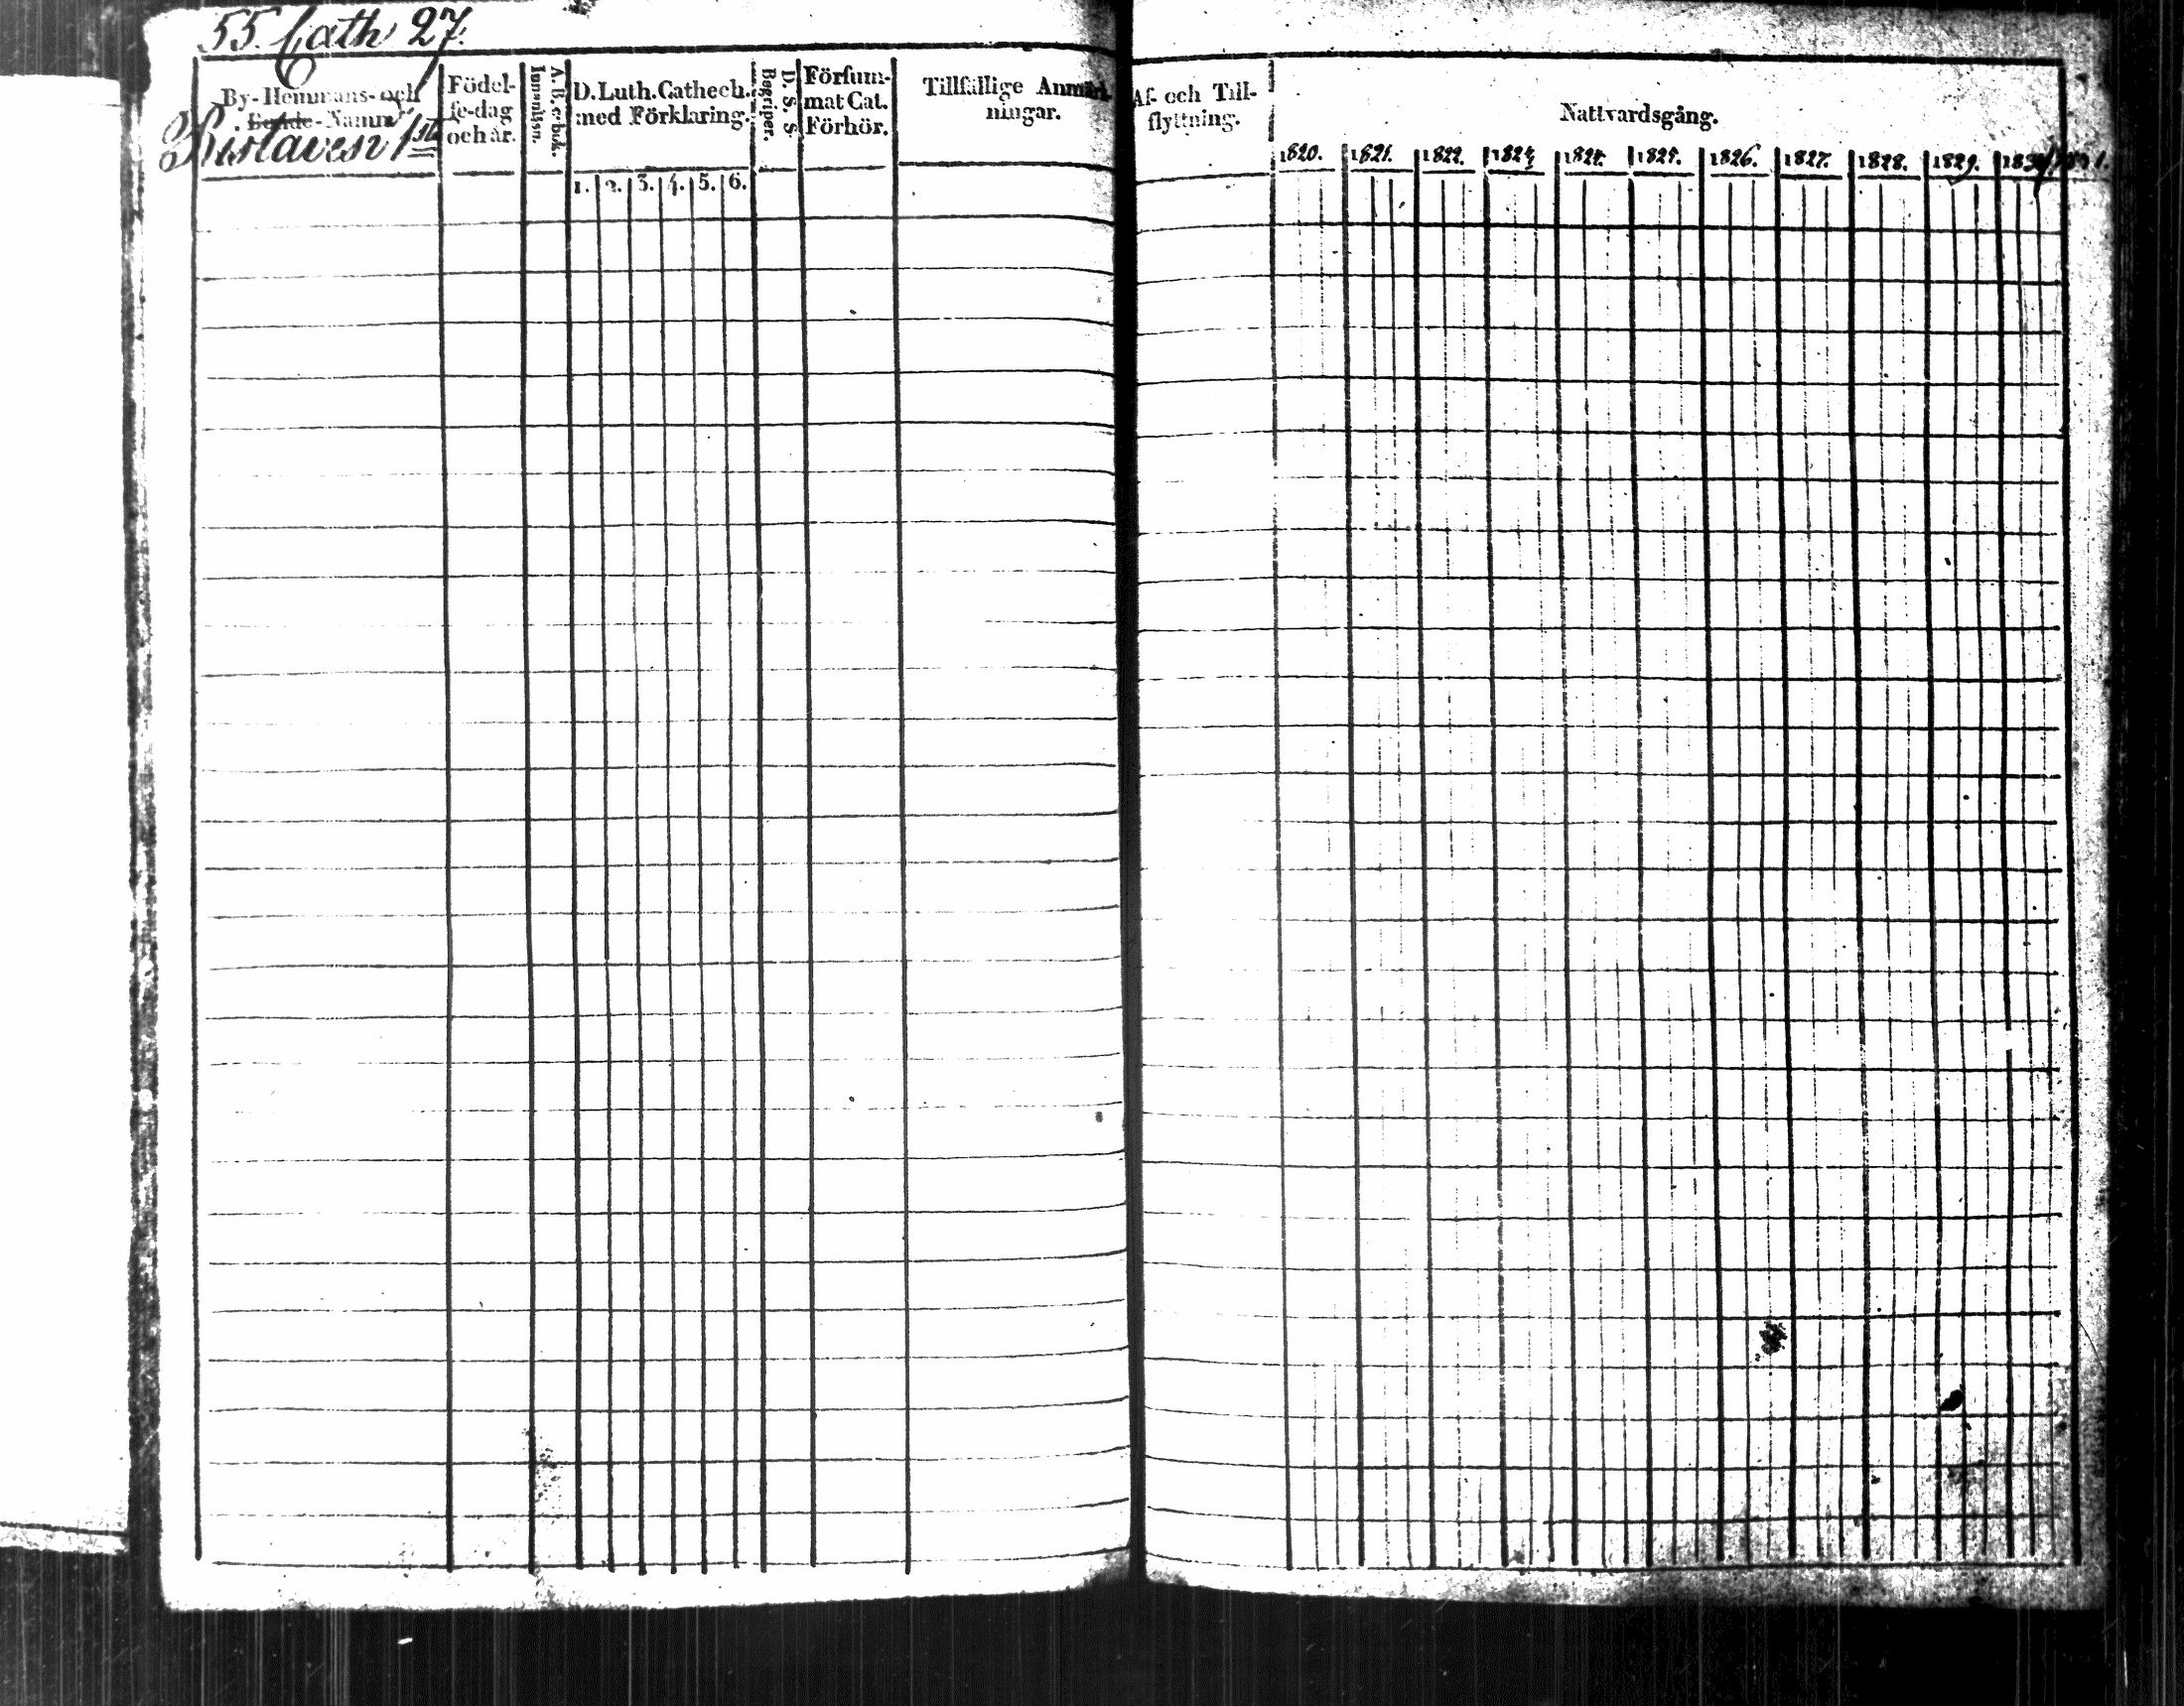 55. Cath 27.
By-Hemmans-och
Boende-Namn
1sta
Födel-
se-dag
och år.
A. B. c. bok.
Innantisn.
D. Luth. Cathech.
med Förklaring.
1. 2. 3. 4. 5. 6.
D. S. S.
Begriper.
Försum-
mat Cat.
Förhör.
Tillfällige Anmärk-
ningar.
Af- och Till-
flyttning.
Nattvardsgång.
1820. 1821. 1822. 1823 1824. 1825. 1826. 1827. 1828. 1829.